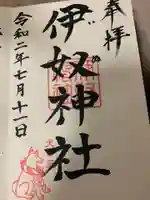 奉拝
伊奴神社
令和二年七月十一日